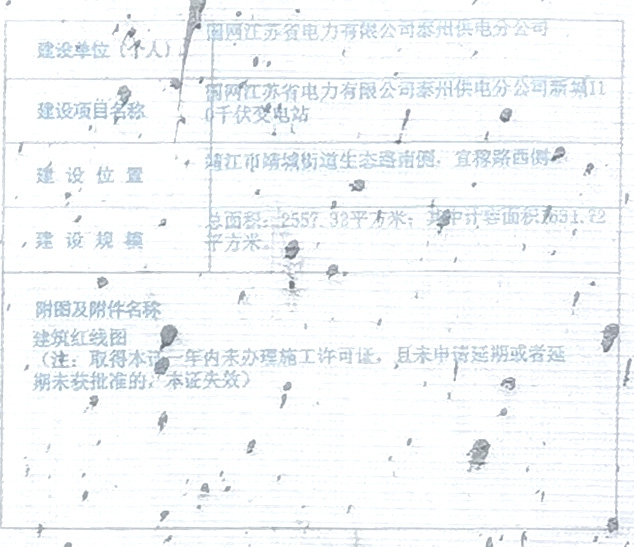 建设单位（个人） 国网江苏省电力有限公司泰州供电分公司
建设项目名称 国网江苏省电力有限公司泰州供电分公司新城11
0千伏变电站
建设位置 靖江市靖城街道生态路南侧，宜稼路西侧
建设规模 总面积：2557.32平方米；其中计容面积1631.72
平方米。
附图及附件名称
建筑红线图
（注：取得本证一年内未办理施工许可证，且未申请延期或者延
期未获批准的，本证失效）